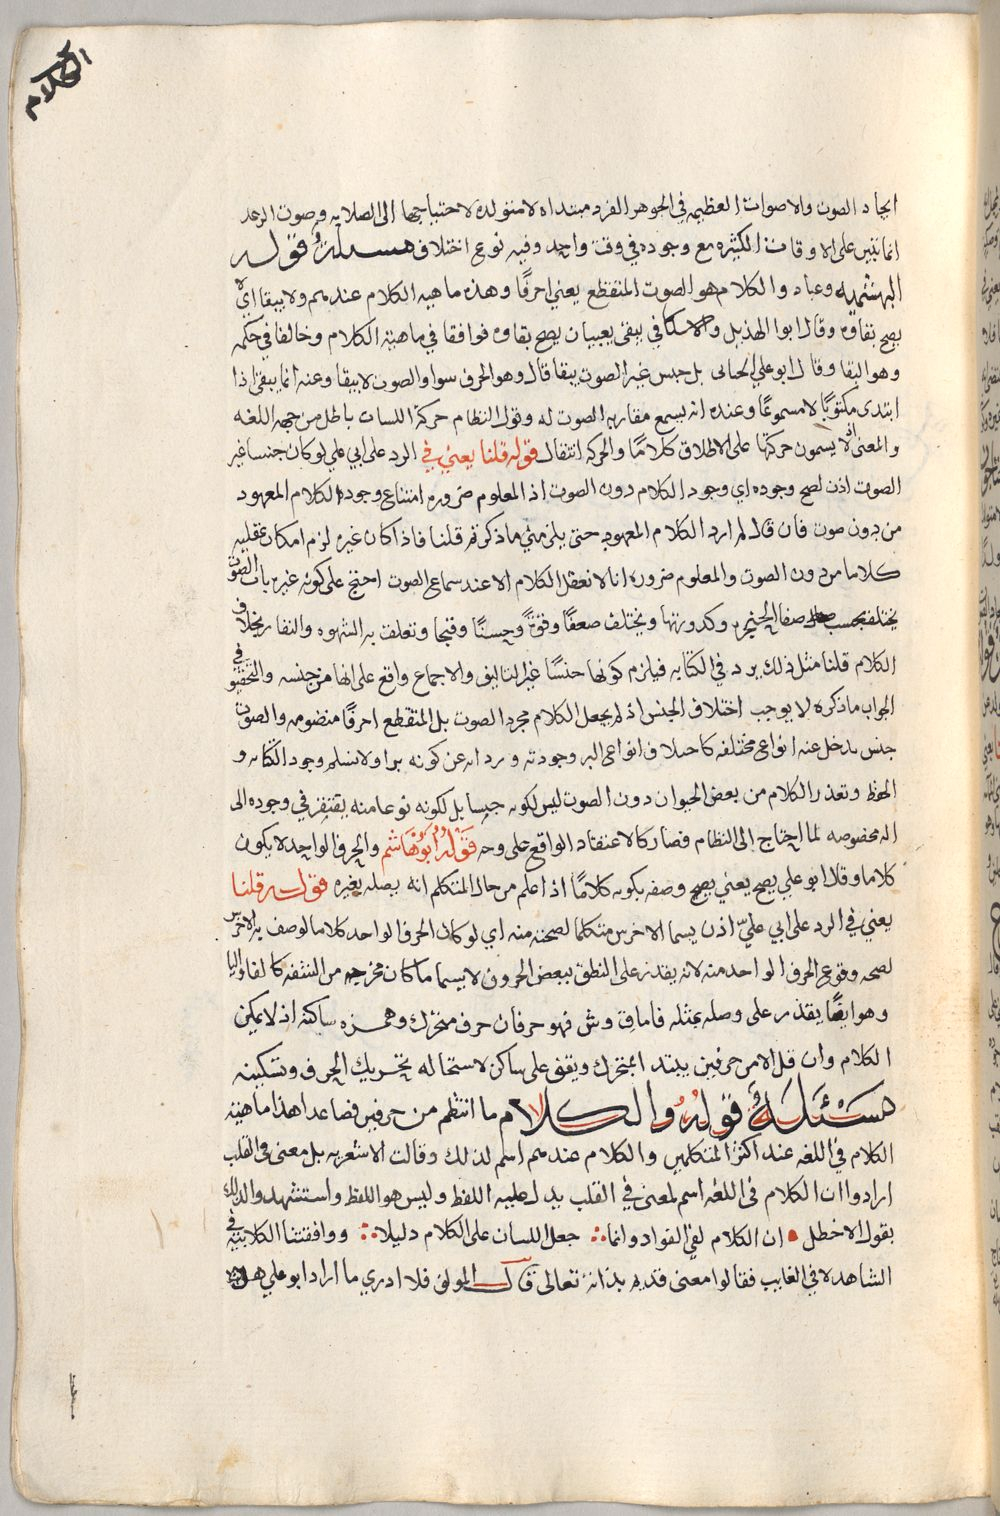 الكلام
ايجاد الصوت والاصوات العظيمه في الجوهر الفرد مبتداه لا متولده لاحتياجها الى الصلابه وصوت الرعد
انما يتبين على الاوقات الكثيره مع وجوده في وقت واحد وفيه نوع اختلاف مسئلة قوله
البهشميه وعباد والكلام هو الصوت المتقطع يعني احرفًا وهذه ماهيه الكلام عندهم ولا يبقا اي لا
يصح بقاوه وقال ابوا الهذيل والاسكافي يبقى يعنيان يصح بقاوه فوافقا في ماهية الكلام وخالفا في حكمه
وهو البقا وقال ابو علي الجبائى بل جنس غير الصوت يبقا قال وهو الحرف سوا والصوت لا يبقا وعنه انما يبقى اذا
ابتدى مكتوبًا لا مسموعًا وعنده انه يسمع مقارنه الصوت له وقول النظام حركة اللسان باطل من جهه اللغه
والمعنى اذ لا يسمون حركتها على الاطلاق كلامًا والحركه انتقال قوله قلنا يعني في الرد على ابي علي لو كان جنسا غير
الصوت اذن لصح وجوده اي وجود الكلام دون الصوت اذ المعلوم ضروره امتناع وجود الكلام المعهود
من دون صوت فان قال لم ارد الكلام المعهود حتى يلزمني ما ذكرتم قلنا فاذا كان غيره لزم امكان تعقليه
كلاما من دون الصوت والمعلوم ضروره انا لا نعقل الكلام الا عند سماع الصوت احتج على كونه غيره بان الصوت
يختلف بحسب صفا الحنجره وكدورتها ويختلف ضعفًا وقوةً وحسنًا وقبحا وتعلقت به الشهوه والنفار بخلاف
الكلام قلنا مثل ذلك يرد في الكتابه فيلزم كونها جنسًا غير التاليف والاجماع واقع على انها من جنسه والتحقيق في
الجواب ما ذكره لا يوجب اختلاف الجنس اذ لم يجعل الكلام مجرد الصوت بل المتقطع احرفًا منضومه والصوت
جنس يدخل عنه انواعي مختلفه كاختلاف انواعى البر وجودته و رداته عن كونه برا ولا نسلم وجود الكتابه و
الحفظ وتعذر الكلام من بعض الحيوان دون الصوت ليس لكونه جنسا بل لكونه نوعا منه يفتقر في وجوده الى
اله مخصوصه لما احتاج الى النظام فصار كالاعتقاد الواقع على وجه قوله ابو هاشم والحرف الواحد لا يكون
كلاما وقال ابو علي يصح يعني يصح وصفه بكونه كلامًا اذا علم من حال المتكلم انه يصله بغيره قوله قلنا
يعني في الرد على ابي علي اذن يسما الاخرس متكلما لصحته منه اي لو كان الحرف الواحد كلاما لوصف به الاخرس
لصحه وقوع الحرف الواحد منه لانه يقدر على النطق ببعض الحروف لا سيما ما كان مخرجه من الشفه كالفا والبا
وهو ايضًا يقدر على وصله بمثله فاما ق وش فهو حرفان حرف متحرك وهمزه ساكنه اذ لا يمكن
الكلام وان قل الا من حرفين يبتدا بمتحرك ويقف على ساكن لاستحاله تحريك الحرف وتسكينه
مسئلة قوله والكلام ما انتظم من حرفين فصاعدا هذا ماهيته
الكلام في اللغه عند اكثر المتكلمين والكلام عندهم اسم لذلك وقالت الاشعريه بل معنى في القلب
ارادوا ان الكلام في اللغه اسم لمعنى في القلب يدل عليه اللفظ وليس هو اللفظ واستشهدوا لذلك
بقول الاخطل ان الكلام لفي الفواد وانما جعل اللسان على الكلام دليلا ووافقتنا الكلابيه في
الشاهد لا في الغايب فقالوا معنى قديم بذاته تعالى قال المولف فلا ادري ما اراد ابو علي هل